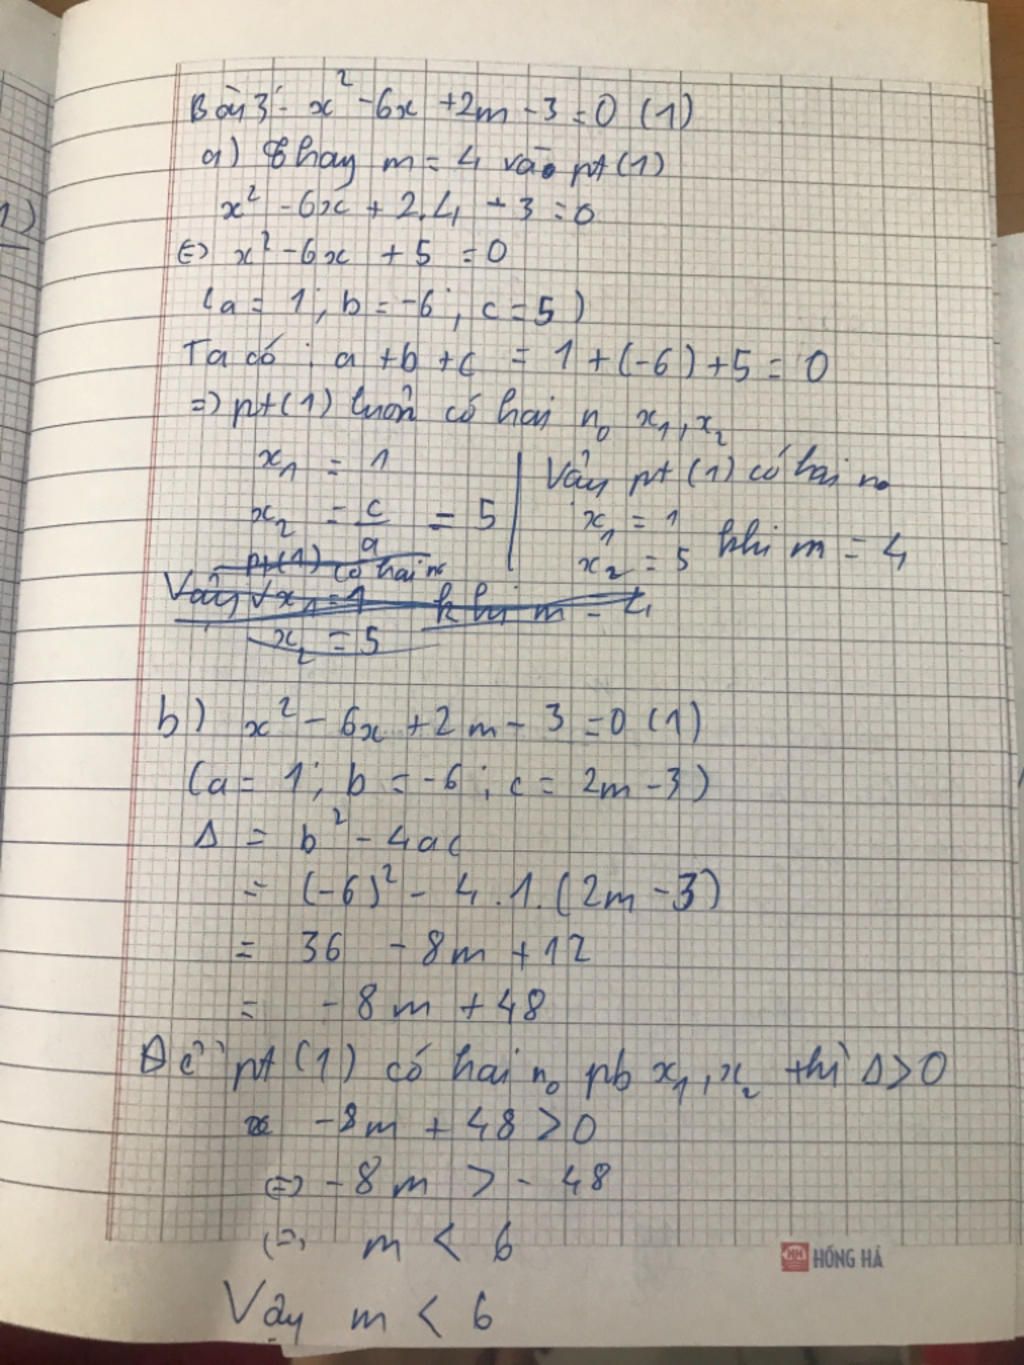 Bài 3: x² - 6x + 2m - 3 = 0 (1)
a) Thay m = 4 vào pt (1)
x² - 6x + 2.4 - 3 = 0
⇔ x² - 6x + 5 = 0
(a = 1; b = -6; c = 5)
Ta có: a + b + c = 1 + (-6) + 5 = 0
=> pt (1) luôn có hai n₀ x₁, x₂
x₁ = 1
x₂ = c/a = 5
Vậy pt (1) có hai n₀
x₁ = 1
x₂ = 5 khi m = 4
pt (1) có hai n₀
Vậy x₁ = 1 khi m = 4
x₂ = 5
b) x² - 6x + 2m - 3 = 0 (1)
(a = 1; b = -6; c = 2m - 3)
Δ = b² - 4ac
= (-6)² - 4.1.(2m - 3)
= 36 - 8m + 12
= -8m + 48
Để pt (1) có hai n₀ pb x₁, x₂ thì Δ > 0
-8m + 48 > 0
⇔ -8m > -48
⇔ m < 6
HỒNG HÀ
Vậy m < 6